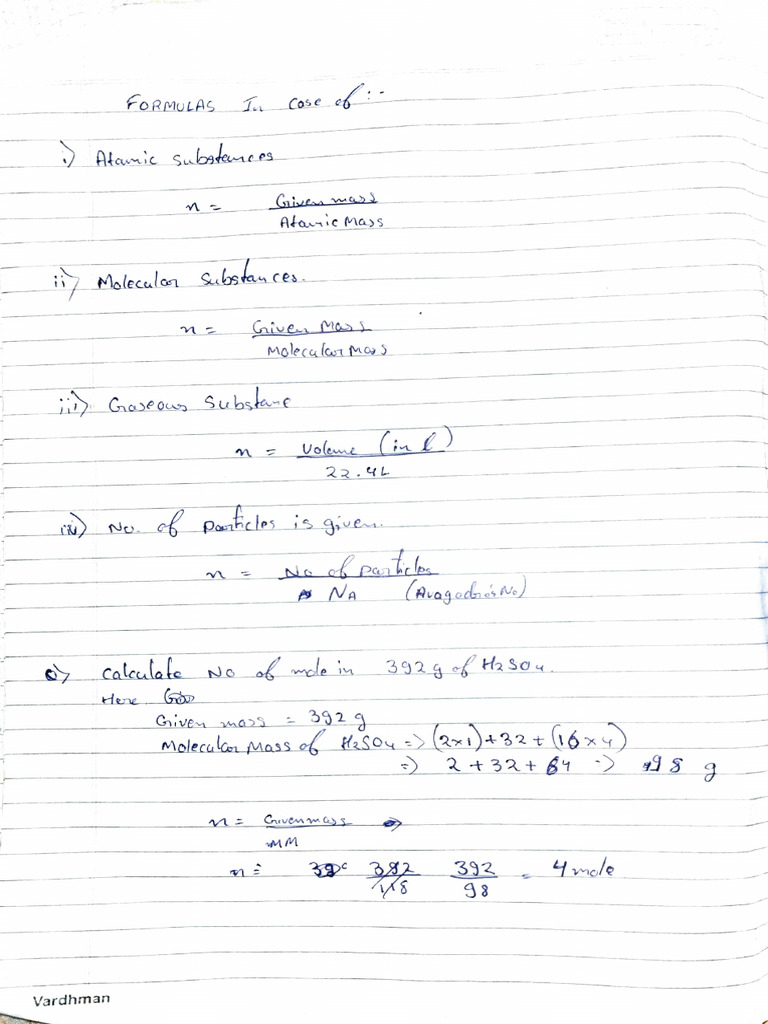 FORMULAS In case of :-
i) Atomic substances
n = Given mass
Atomic Mass
ii) Molecular Substances.
n = Given Mass
Molecular Mass
iii) Gaseous Substane
n = Volume (in l)
22.4L
iv) No. of particles is given.
n = No of particles
NA (Avagadro's No)
Q) Calculate No of mole in 392g of H2SO4.
Here
Given mass = 392 g
Molecular Mass of H2SO4 => (2x1)+32+(16x4)
=> 2+32+64 => 98 g
n = Given mass =>
MM
n = 392 392 = 4 mole
118 98
Vardhman